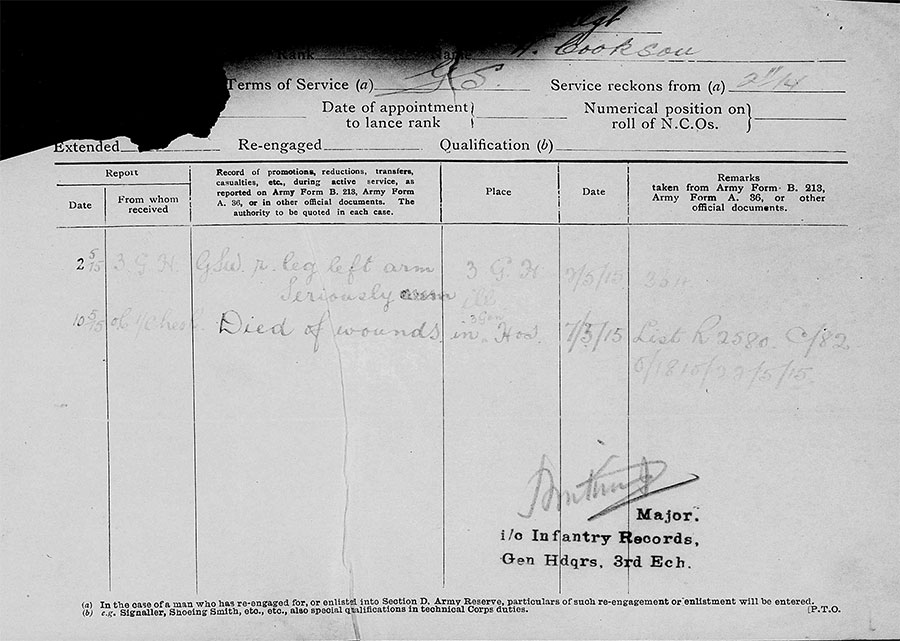 Rank
Cookson
Terms of Service (a) G.S. Service reckons from (a)
Date of appointment to lance rank } Numerical position on roll of N.C.Os. }
Extended Re-engaged Qualification (b)
Report
Date
From whom received
Record of promotions, reductions, transfers, casualties, etc., during active service, as reported on Army Form B. 213, Army Form A. 36, or in other official documents. The authority to be quoted in each case.
Place
Date
Remarks taken from Army Form B. 213, Army Form A. 36, or other official documents.
2 5/15 3 G H. GSW. r. leg left arm 3 G. H 2/5/15
Seriously ill
10 5/15 Died of wounds. in 3 Gen Hos. 7/5/15 List R 2580. C/82
Major.
i/c Infantry Records,
Gen Hdqrs, 3rd Ech.
(a) In the case of a man who has re-engaged for, or enlisted into Section D. Army Reserve, particulars of such re-engagement or enlistment will be entered.
(b) e.g. Signaller, Shoeing Smith, etc., etc., also special qualifications in technical Corps duties. [P.T.O.